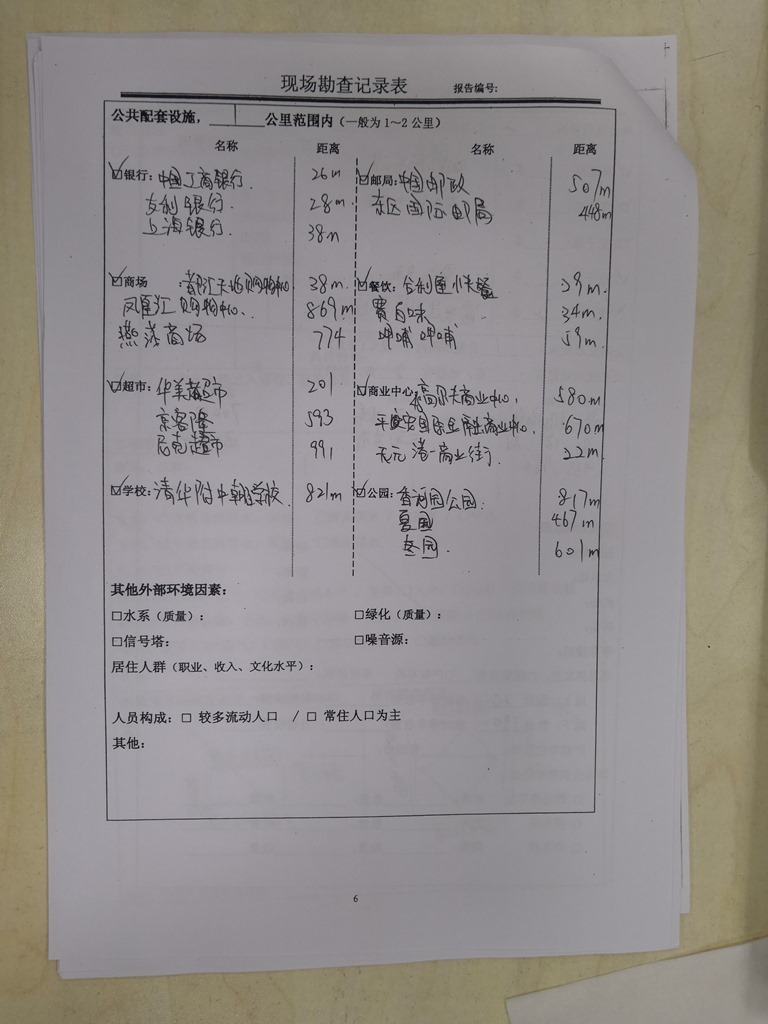 现场勘查记录表 报告编号:
公共配套设施,____1____公里范围内(一般为1~2公里)
名称 距离 名称 距离
☑银行:中国工商银行. 26m ☑邮局:中国邮政 507m
友利银行. 28m. 东区国际邮局 448m
上海银行. 38m
☑商场:首都汇天地购物中心 38m. ☑餐饮:合利屋小火餐 29m.
凤凰汇购物中心. 869m 賽百味 34m.
燕莎商场 774 呷哺呷哺 59m.
☑超市:华美超市 201 ☑商业中心:高尔夫商业中心, 580m
京客隆 593 国际金融商业中心. 670m
尼克超市 991 天元港-商业街. 22m
☑学校:清华附中朝阳学校. 821m ☑公园:香河园公园. 817m
夏园 467m
冬园. 601m
其他外部环境因素:
□水系(质量): □绿化(质量):
□信号塔: □噪音源:
居住人群(职业、收入、文化水平):
人员构成:□ 较多流动人口 / □ 常住人口为主
其他:
6